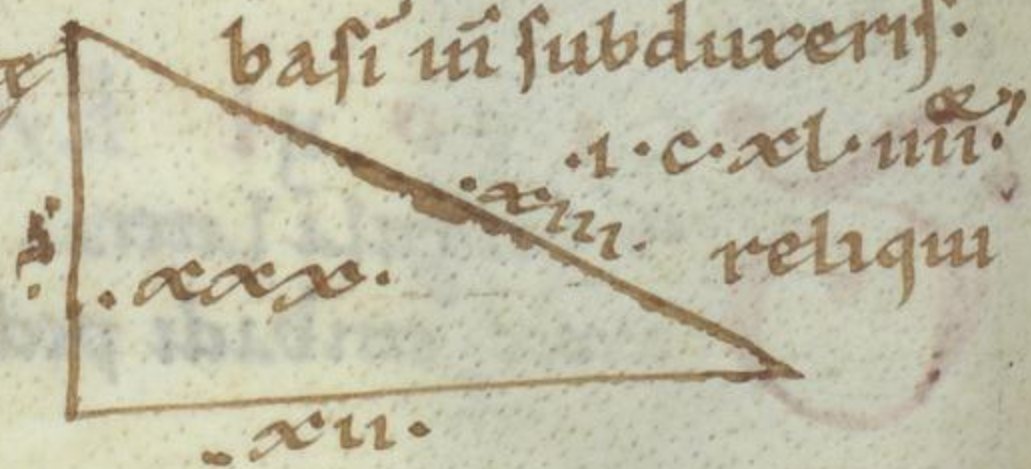 basī uñ subduxeris.
.i.c.xl.iiii.
.xiii. reliqui
.xxx.
.xii.